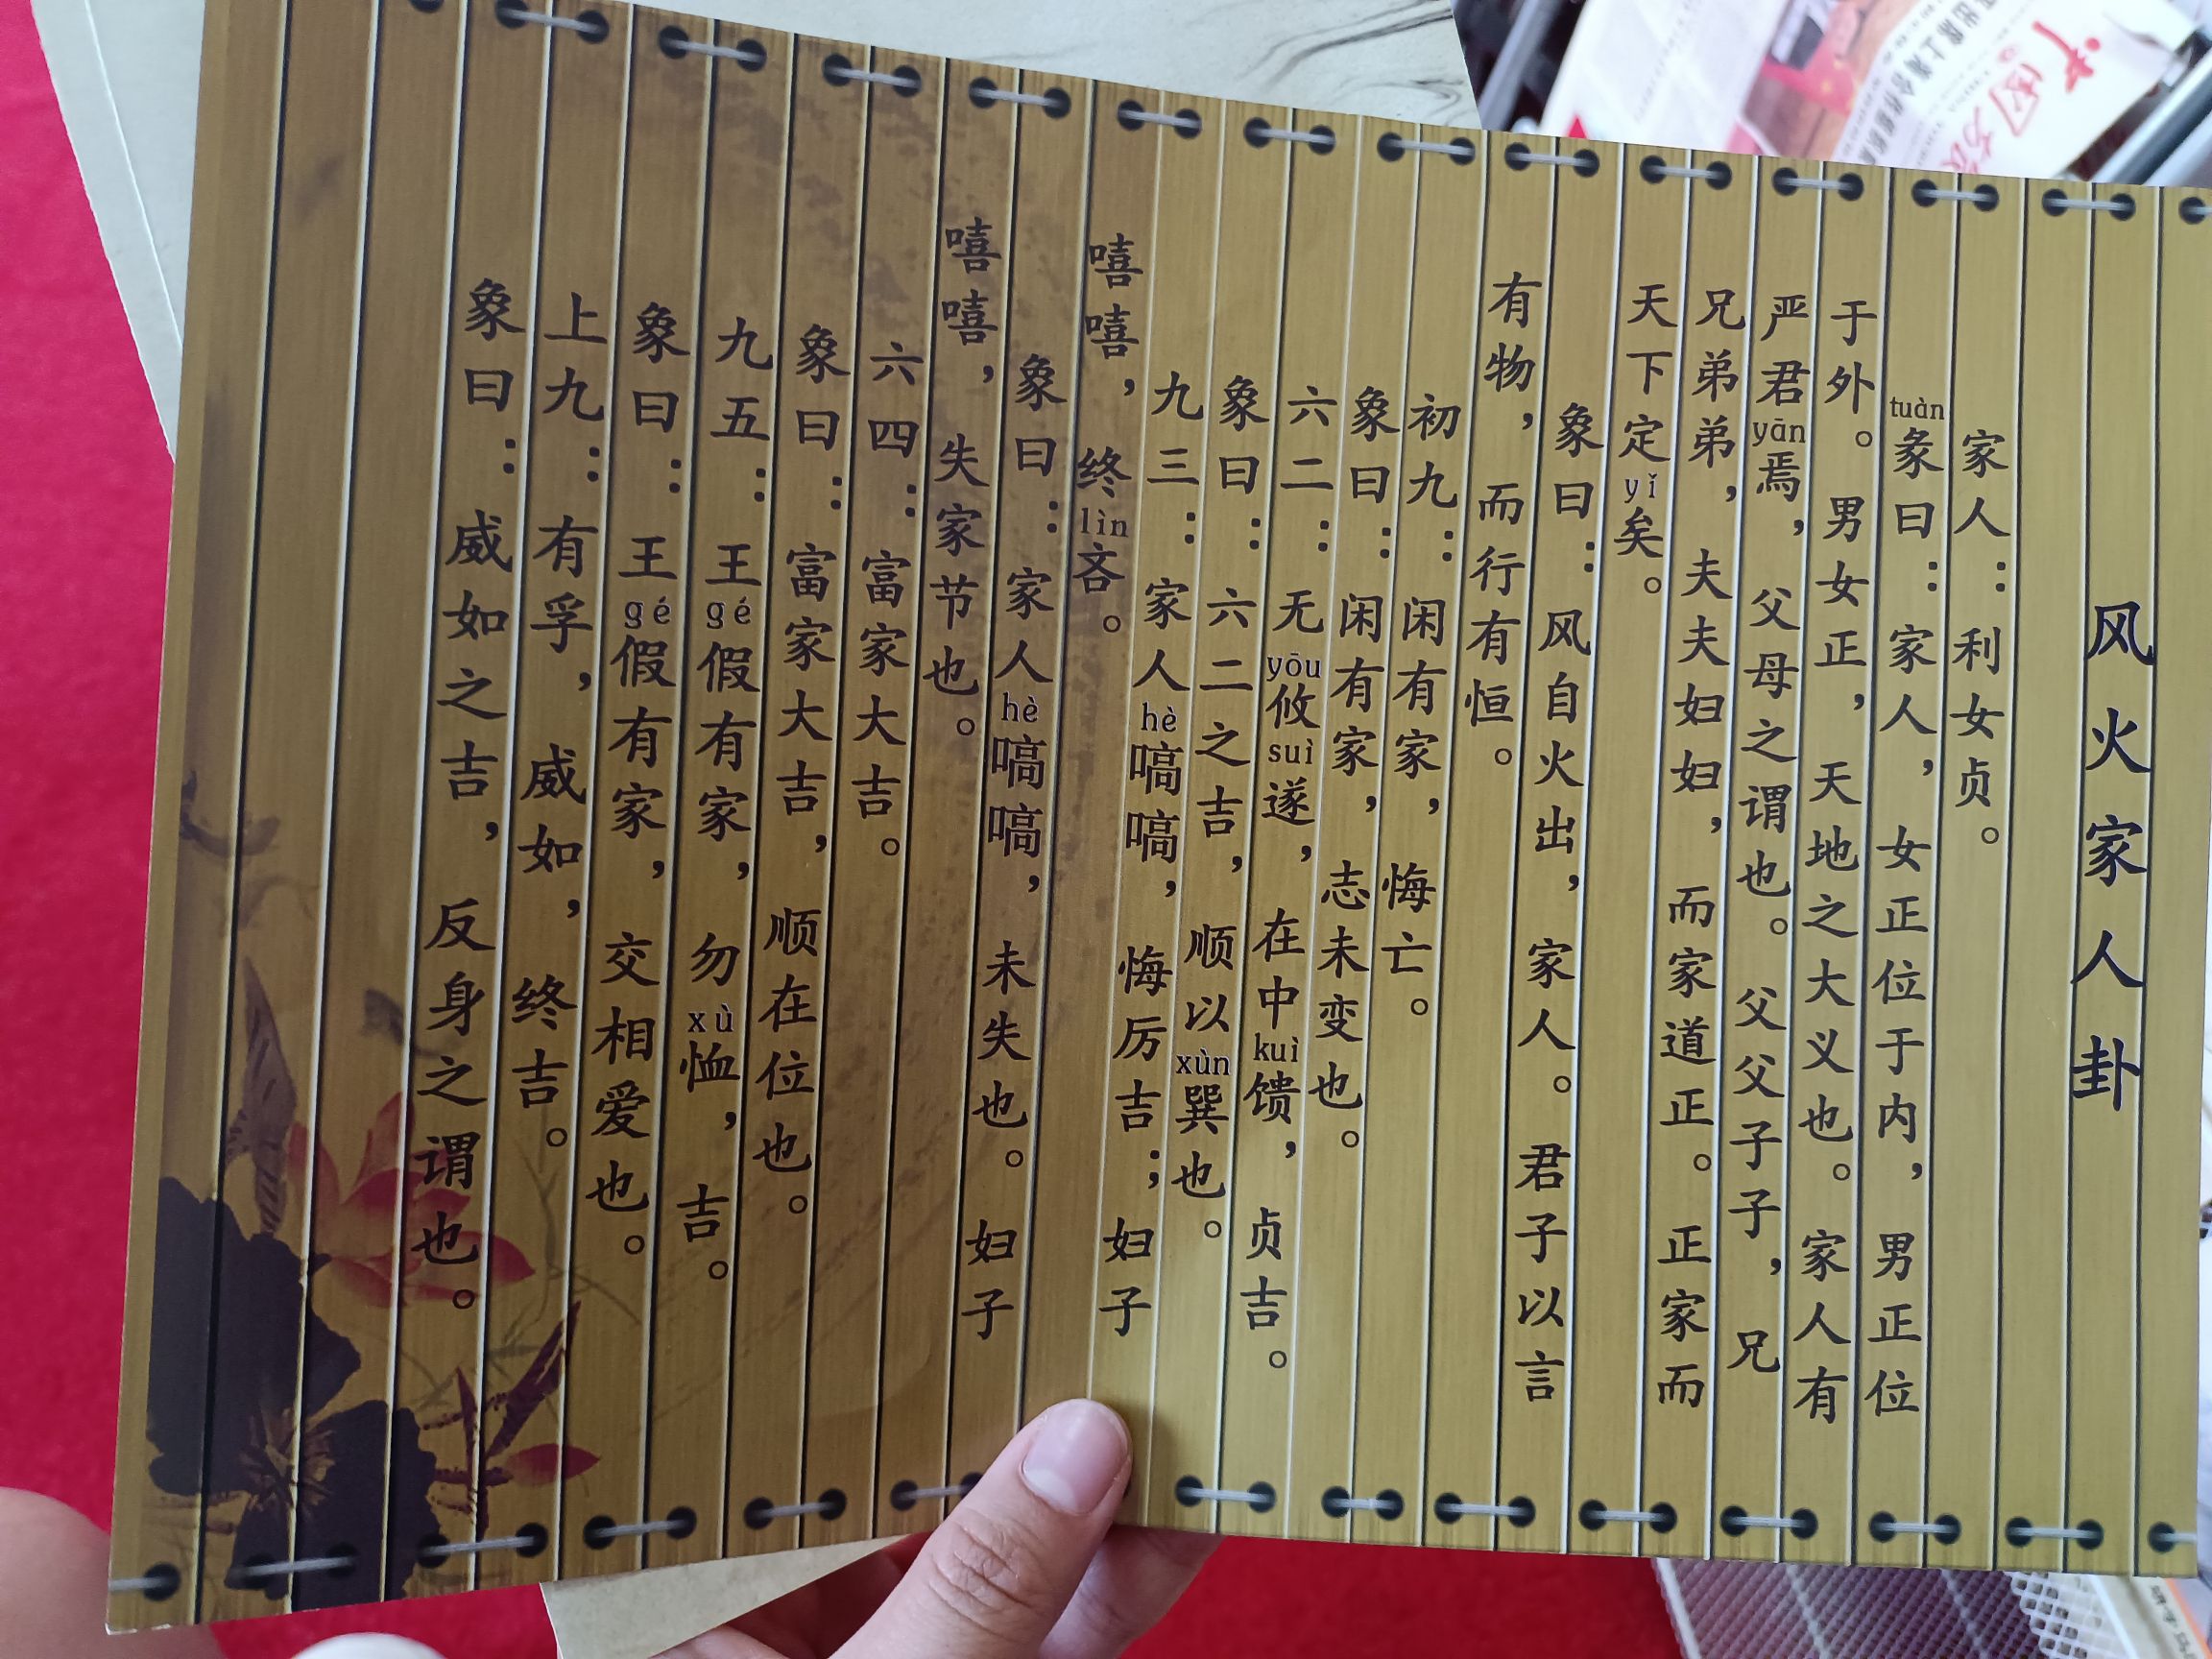 风火家人卦
家人：利女贞。
tuàn
彖曰：家人，女正位于内，男正位
于外。男女正，天地之大义也。家人有
yān
严君焉，父母之谓也。父父子子，兄
兄弟弟，夫夫妇妇，而家道正。正家而
yǐ
天下定矣。
象曰：风自火出，家人。君子以言
有物，而行有恒。
初九：闲有家，悔亡。
象曰：闲有家，志未变也。
yōu suì kuì
六二：无攸遂，在中馈，贞吉。
xùn
象曰：六二之吉，顺以巽也。
hè
九三：家人嗃嗃，悔厉吉；妇子
lìn
嘻嘻，终吝。
hè
象曰：家人嗃嗃，未失也。妇子
嘻嘻，失家节也。
六四：富家大吉。
象曰：富家大吉，顺在位也。
gé xù
九五：王假有家，勿恤，吉。
gé
象曰：王假有家，交相爱也。
上九：有孚，威如，终吉。
象曰：威如之吉，反身之谓也。
中国